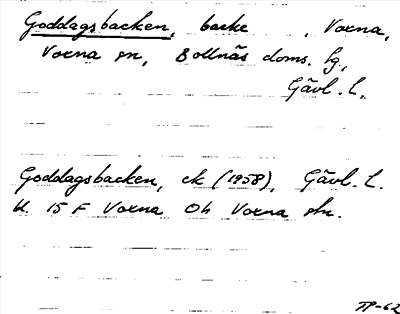 Goddagsbacken, backe , Voxna,
Voxna sn, Bollnäs doms. sg,
Gävl. l.
Goddagsbacken, ek (1958), Gävl. l.
bl. 15 F Voxna Oh Voxna skn.
TP-62